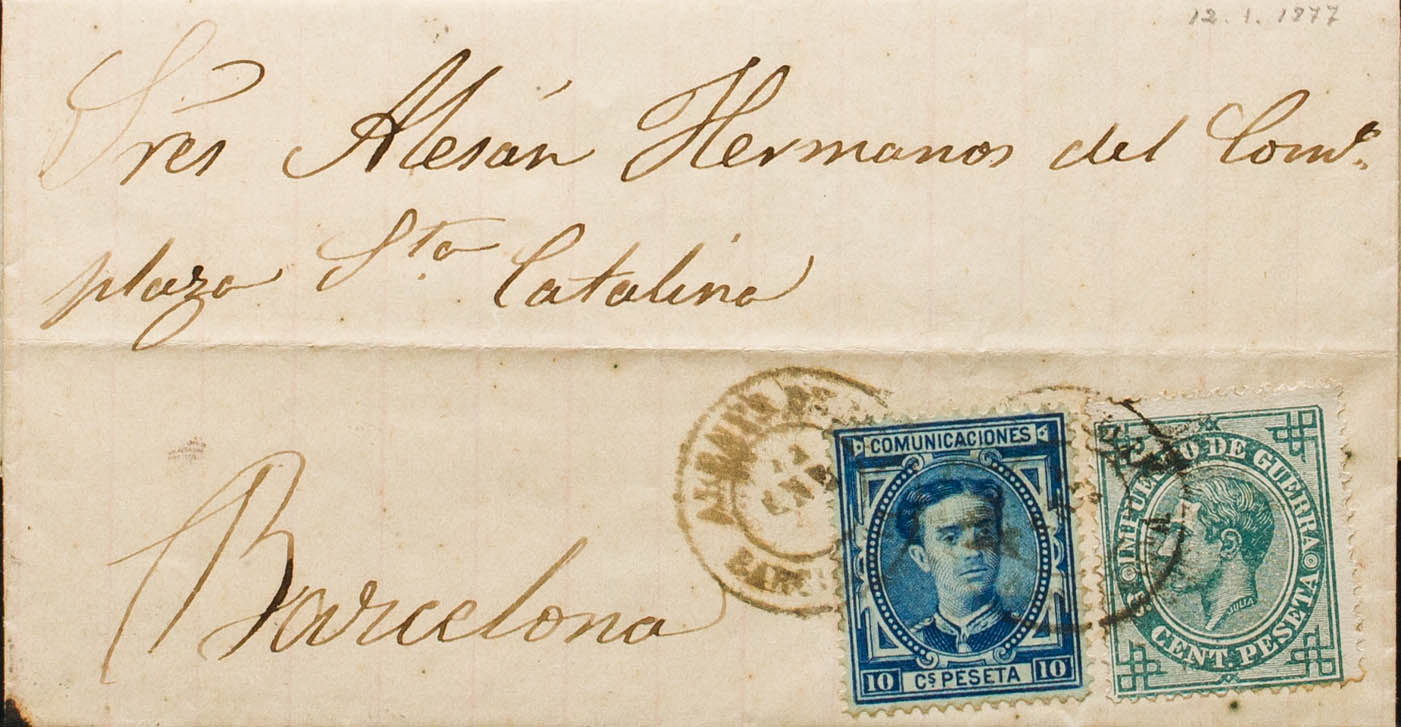 12.1.1877
Sres Alesán Hermanos del Comº.
plaza Sta Catalina
Barcelona
COMUNICACIONES
10 Cs PESETA 10
IMPUESTO DE GUERRA
CENT. PESETA
JULIA
ENE